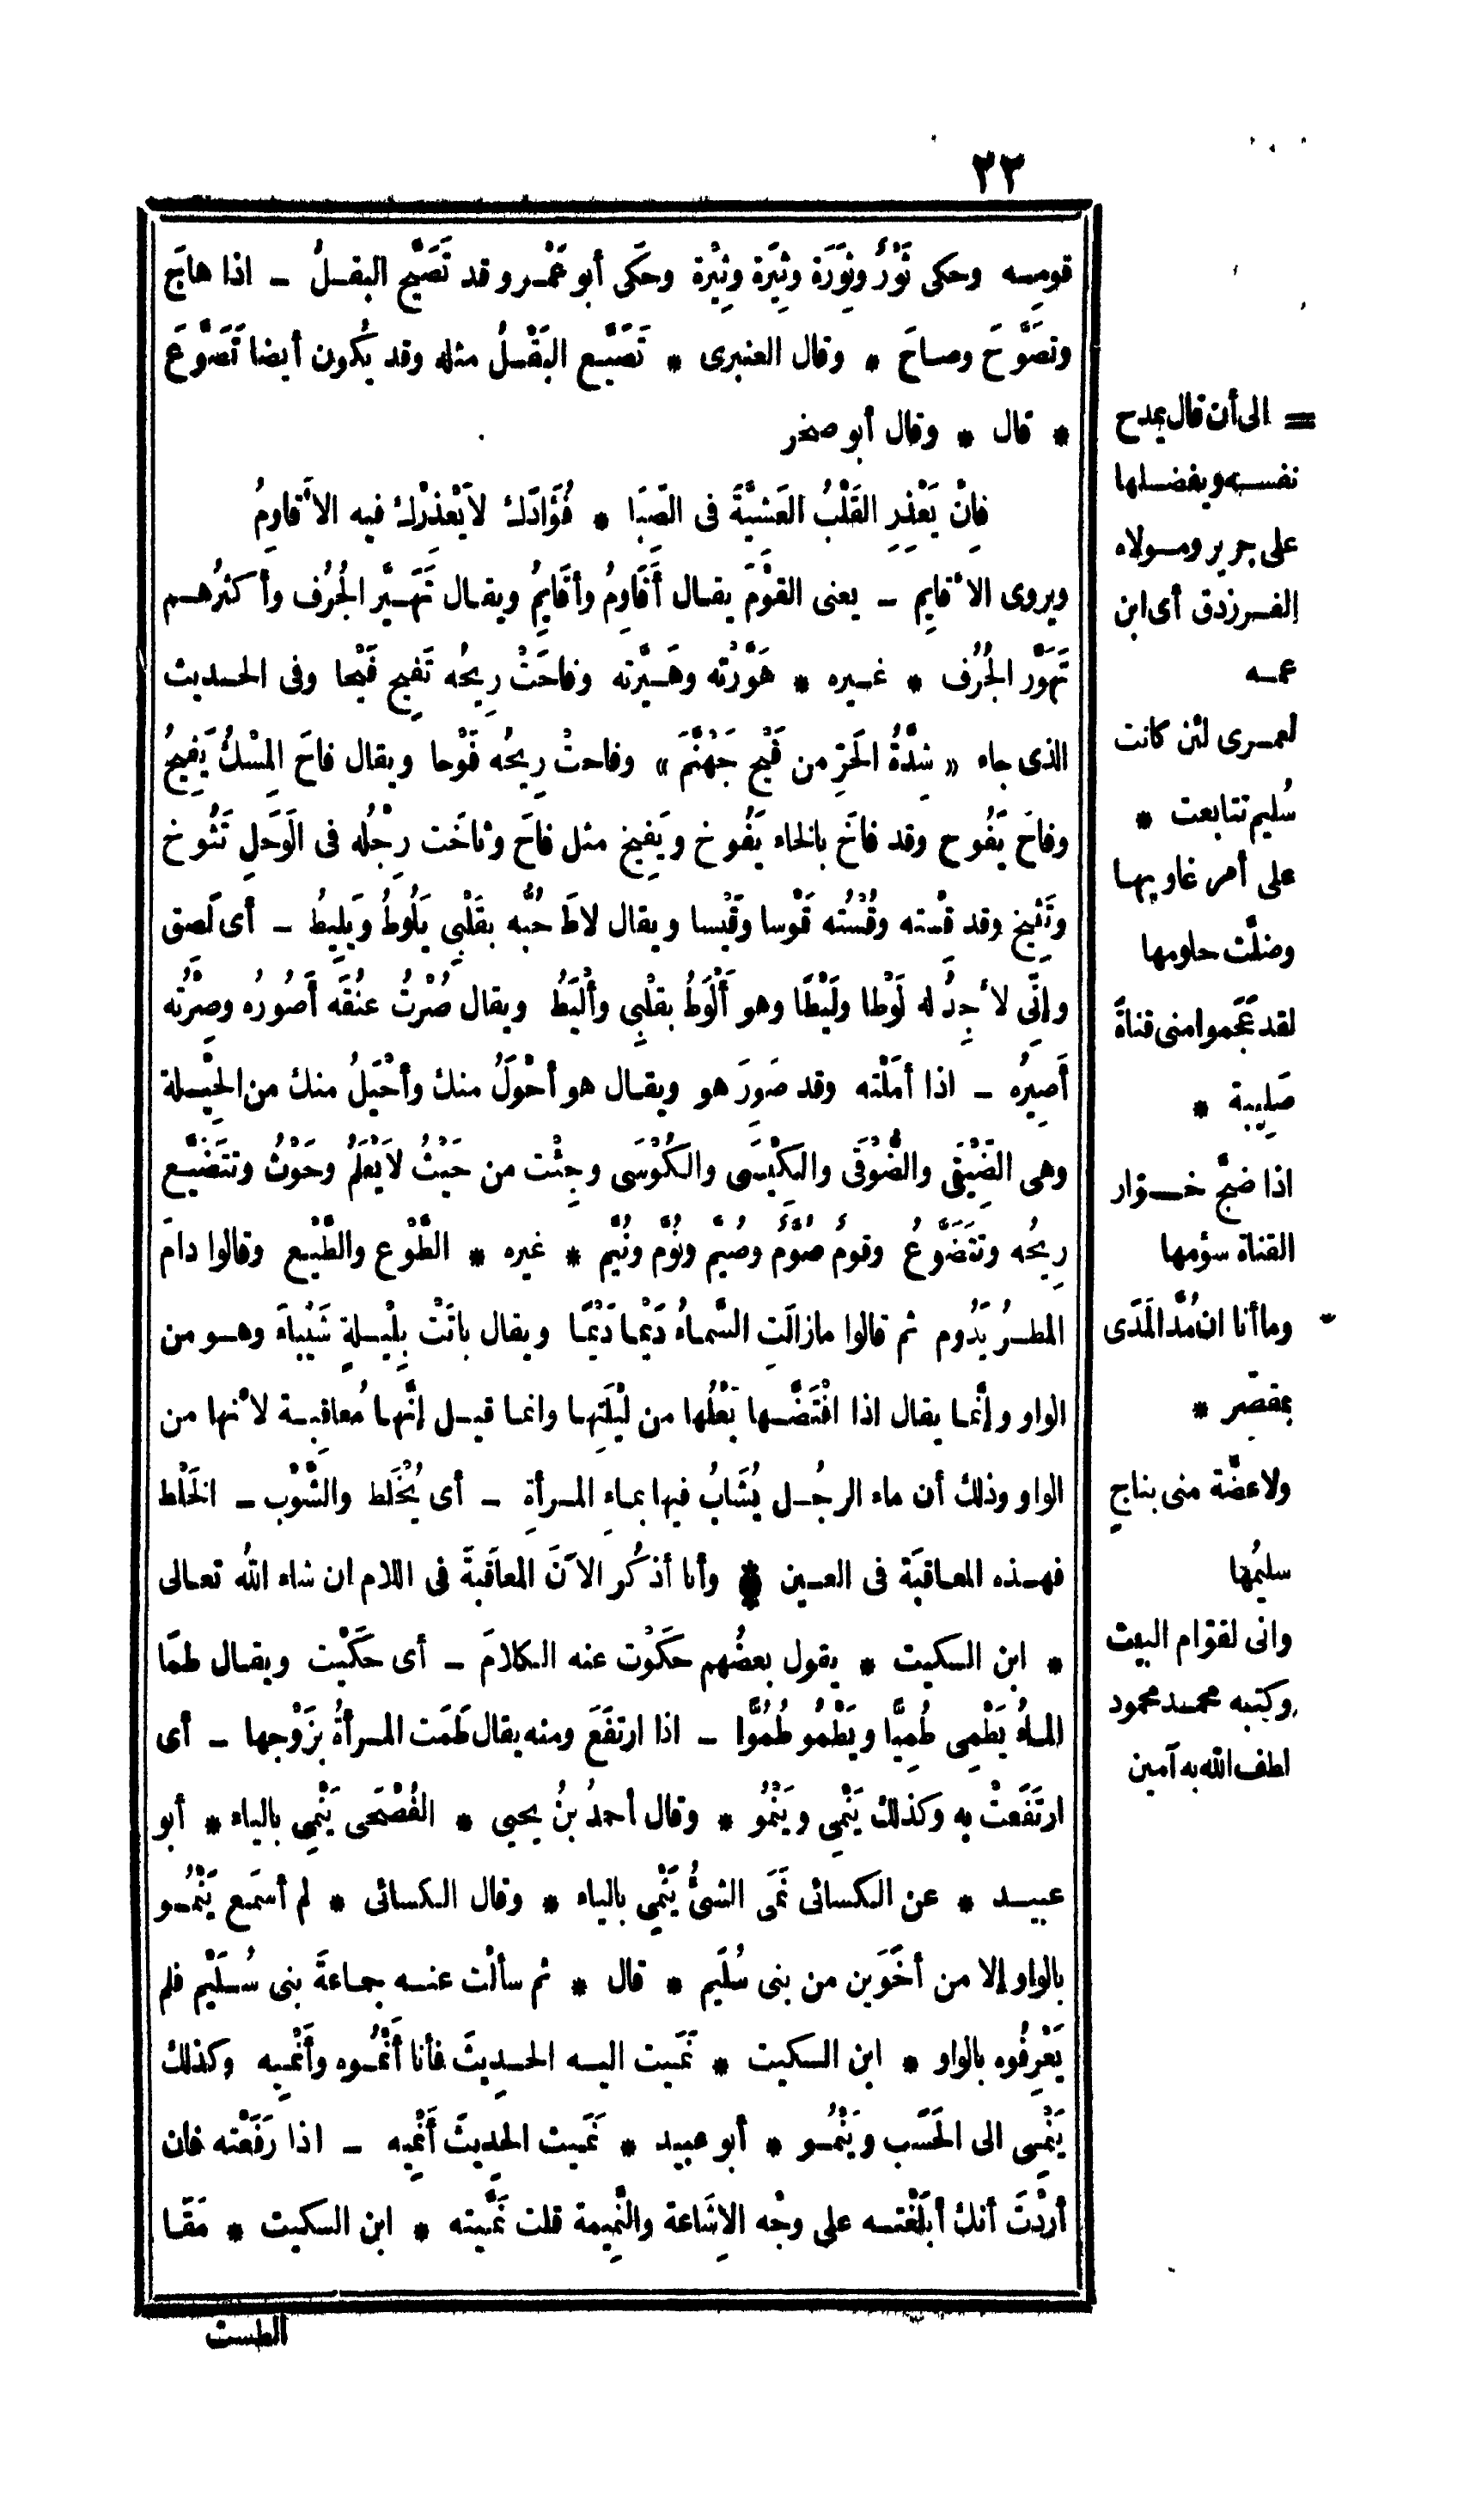 ٢٣
قومِه وحكى ثَوْرٌ وثِوَرَة وثِيَرَة وثِيْرة وحَكَى أبو عَمْرو قد تَصَيَّح البقلُ ـ اذا هاجَ
وتصَوَّحَ وصاحَ * وقال العنبرى * تَصَيَّع البَقْلُ مثله وقد يكُون أيضا تَصَوَّعَ
* قال * وقال أبو صخر
فإنْ يَعْذِرِ القَلْبُ العَشِيَّةَ فى الصِّبَا * فُؤَادَكَ لا يَعْذِرْكَ فيه الأَقاوِمُ
ويروى الأقايِم ـ يعنى القوْمَ يقال أَقَاوِمُ وأقَايِمُ ويقال تَهَيَّر الجُرُف وأكثرُهم
تَهَوَّر الجُرُف * غيره * هَوَّرْته وهَيَّرْته وفاحَتْ رِيحُه تَفِيح فَيْحا وفى الحديث
الذى جاء « شِدَّةُ الحَرِّ من فَيْحِ جَهَنَّمَ » وفاحتْ رِيحُه فَوْحا ويقال فاحَ المِسْكُ يَفِيحُ
وفاحَ يَفُوح وقد فاخَ بالخاء يَفُوخ ويَفِيخ مثل فاحَ وثاخَت رِجْلُه فى الوَحَلِ تَثُوخ
وتَثِيخ وقد قِسْته وقُسْتُه قَوْسا وقَيْسا ويقال لاطَ حُبُّه بقَلْبِى يَلُوطُ ويَلِيطُ ـ أى لَصِق
وإنِّى لأجِدُ له لَوْطا ولَيْطًا وهو أَلْوَطُ بقلْبِى وأَلْيَطُ ويقال صُرْتُ عنُقَه أَصُورُه وصِرْتُه
أَصِيرُه ـ اذا أمَلْته وقد صَوِرَ هو ويقال هو أحْوَلُ منك وأحْيَلُ منك من الحِيْلة
وهى الضِّيْقَى والضُّوْقَى والكِيْسَى والكُوْسَى وجِئْت من حَيْثُ لا يَعْلَمُ وحَوْثُ وتتَضَيَّع
رِيحُه وتتَضَوَّعُ وقومٌ صُوَّمٌ وصُيَّمٌ ونُوَّم ونُيَّم * غيره * الطَّوْع والطَّيْع وقالوا دامَ
المطرُ يَدُوم ثم قالوا مازالَتِ السَّماءُ دَيْما دَيْمًا ويقال باتَتْ بِلَيْلةِ شَيْباءَ وهو من
الواو وإنَّما يقال اذا افْتَضَّها بَعْلُها من لَيْلَتِها وانما قيل إنَّها مُعاقِبة لأنها من
الواو وذلك أن ماء الرجُل يُشَابُ فيها بماءِ المرأةِ ـ أى يُخْلَط والشَّوْب ـ الخَلْط
فهذه المعاقبَة فى العين * وأنا أذكُر الآنَ المعاقَبةَ فى اللام ان شاء الله تعالى
* ابن السكيت * يقول بعضُهم حكَوْت عنه الكلامَ ـ أى حكَيْت ويقال طمَا
الماءُ يَطْمِى طُمِيًّا ويَطْمُو طُمُوًّا ـ اذا ارتفَعَ ومنه يقال طَمَت المرأةُ بزَوْجها ـ أى
ارتَفَعتْ به وكذلك يَنْمِى ويَنْمُو * وقال أحمدُ بنُ يحيى * الفُصْحَى يَنْمِى بالياء * أبو
عبيد * عن الكسائى نَمَى الشىُّ يَنْمِى بالياء * وقال الكسائى * لم أسمَع يَنْمُو
بالواو إلا من أخَوَين من بنى سُلَيم * قال * ثم سألْت عنه جماعةَ بنى سُلَيْم فلم
يَعْرِفُوه بالواو * ابن السكيت * نَمَيت اليه الحدِيثَ فأنا أَنْمُوه وأَنْمِيه وكذلك
يَنْمِى الى الحَسَب ويَنْمُو * أبو عبيد * نَمَيت الحدِيثَ أَنْمِيه ـ اذا رَفَعْته فان
أردْتَ أنك أبلَغْته على وجْه الإشَاعة والنَّمِيمة قلت نَمَّيته * ابن السكيت * مَقَا
الطست
= الى أن قال يمدح
نفسه ويفضلها
على جرير ومولاه
الفرزدق أى ابن
عمه
لعمرى لئن كانت
سُليم تتابعت *
على أمر غاويها
وضلَّت حلومها
لقد عَجَموا منى قناةً
صَلِيبة *
اذا ضجَّ خوّار
القناة سؤمها
وما أنا ان مُدَّ المَدَى
بمقصّر *
ولا عضَّة منى بناجٍ
سليمُها
وانى لقوّام البيت
وكتبه محمد محمود
لطف الله به آمين